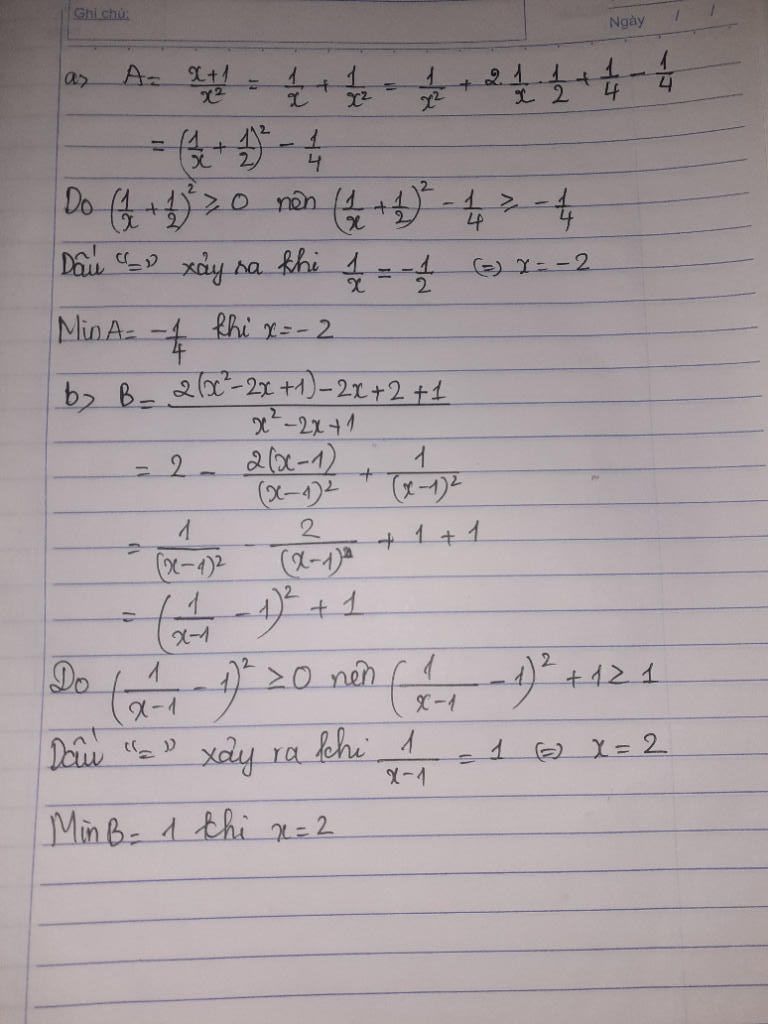 Ghi chú:
Ngày / /
a> A = (x+1)/x² = 1/x + 1/x² = 1/x² + 2 1/x . 1/2 + 1/4 - 1/4
= (1/x + 1/2)² - 1/4
Do (1/x + 1/2)² ≥ 0 nên (1/x + 1/2)² - 1/4 ≥ -1/4
Dấu "=" xảy ra khi 1/x = -1/2 (=) x = -2
Min A = -1/4 khi x = -2
b> B = (2(x² - 2x + 1) - 2x + 2 + 1)/(x² - 2x + 1)
= 2 - 2(x-1)/(x-1)² + 1/(x-1)²
= 1/(x-1)² - 2/(x-1) + 1 + 1
= (1/(x-1) - 1)² + 1
Do (1/(x-1) - 1)² ≥ 0 nên (1/(x-1) - 1)² + 1 ≥ 1
Dấu "=" xảy ra khi 1/(x-1) = 1 (=) x = 2
Min B = 1 khi x = 2